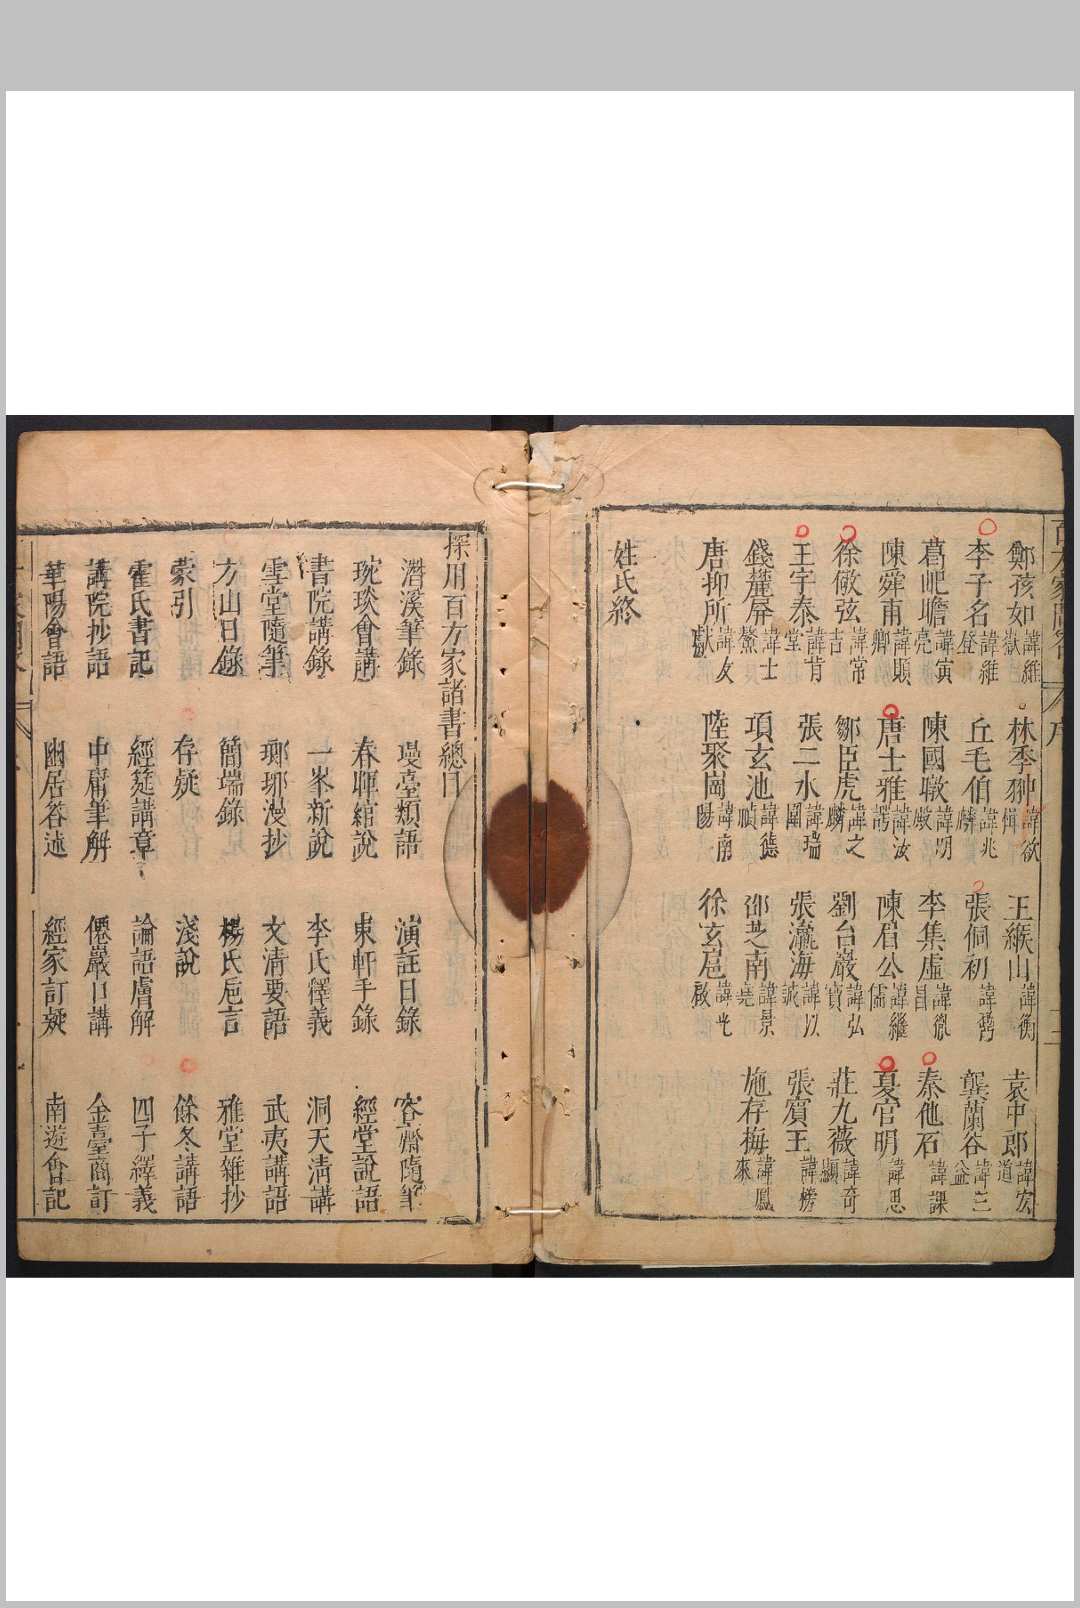 鄭孩如諱維嶽 林季翀諱欲楫 王緱山諱衡 袁中郎諱宏道
李子名諱維登 丘毛伯諱兆麟 張侗初諱鼐 龔蘭谷諱三益
葛屺瞻諱寅亮 陳國暾諱明殷 李集虛諱胤昌 秦他石諱課
陳舜甫諱顯卿 唐士雅諱汝諤 陳眉公諱繼儒 夏官明諱思
徐儆弦諱常吉 鄒臣虎諱之麟 劉台巖諱弘寶 莊九薇諱奇顯
王宇泰諱肯堂 張二水諱瑞圖 張瀛海諱以誠 張賓王諱榜
錢麓屏諱士鰲 項玄池諱德楨 邵芝南諱景堯 施存梅諱鳳來
唐抑所諱文獻 陸聚崗諱南陽 徐玄扈諱光啟
姓氏終
採用百方家諸書總目
潛溪筆錄 曼臺類語 演註日錄 容齋隨筆
琬琰會講 春暉綰說 東軒手錄 經堂說語
書院講錄 一峯新說 李氏釋義 洞天清講
雪堂隨筆 瑯琊漫抄 文清要語 武夷講語
方山日錄 簡端錄 楊氏巵言 雅堂雜抄
蒙引 存疑 淺說 餘冬講語
霍氏書記 經筵講章 論語膚解 四子繹義
講院抄語 中庸筆解 僊巖口講 金臺商訂
華陽會語 幽居答述 經家訂疑 南遊會記